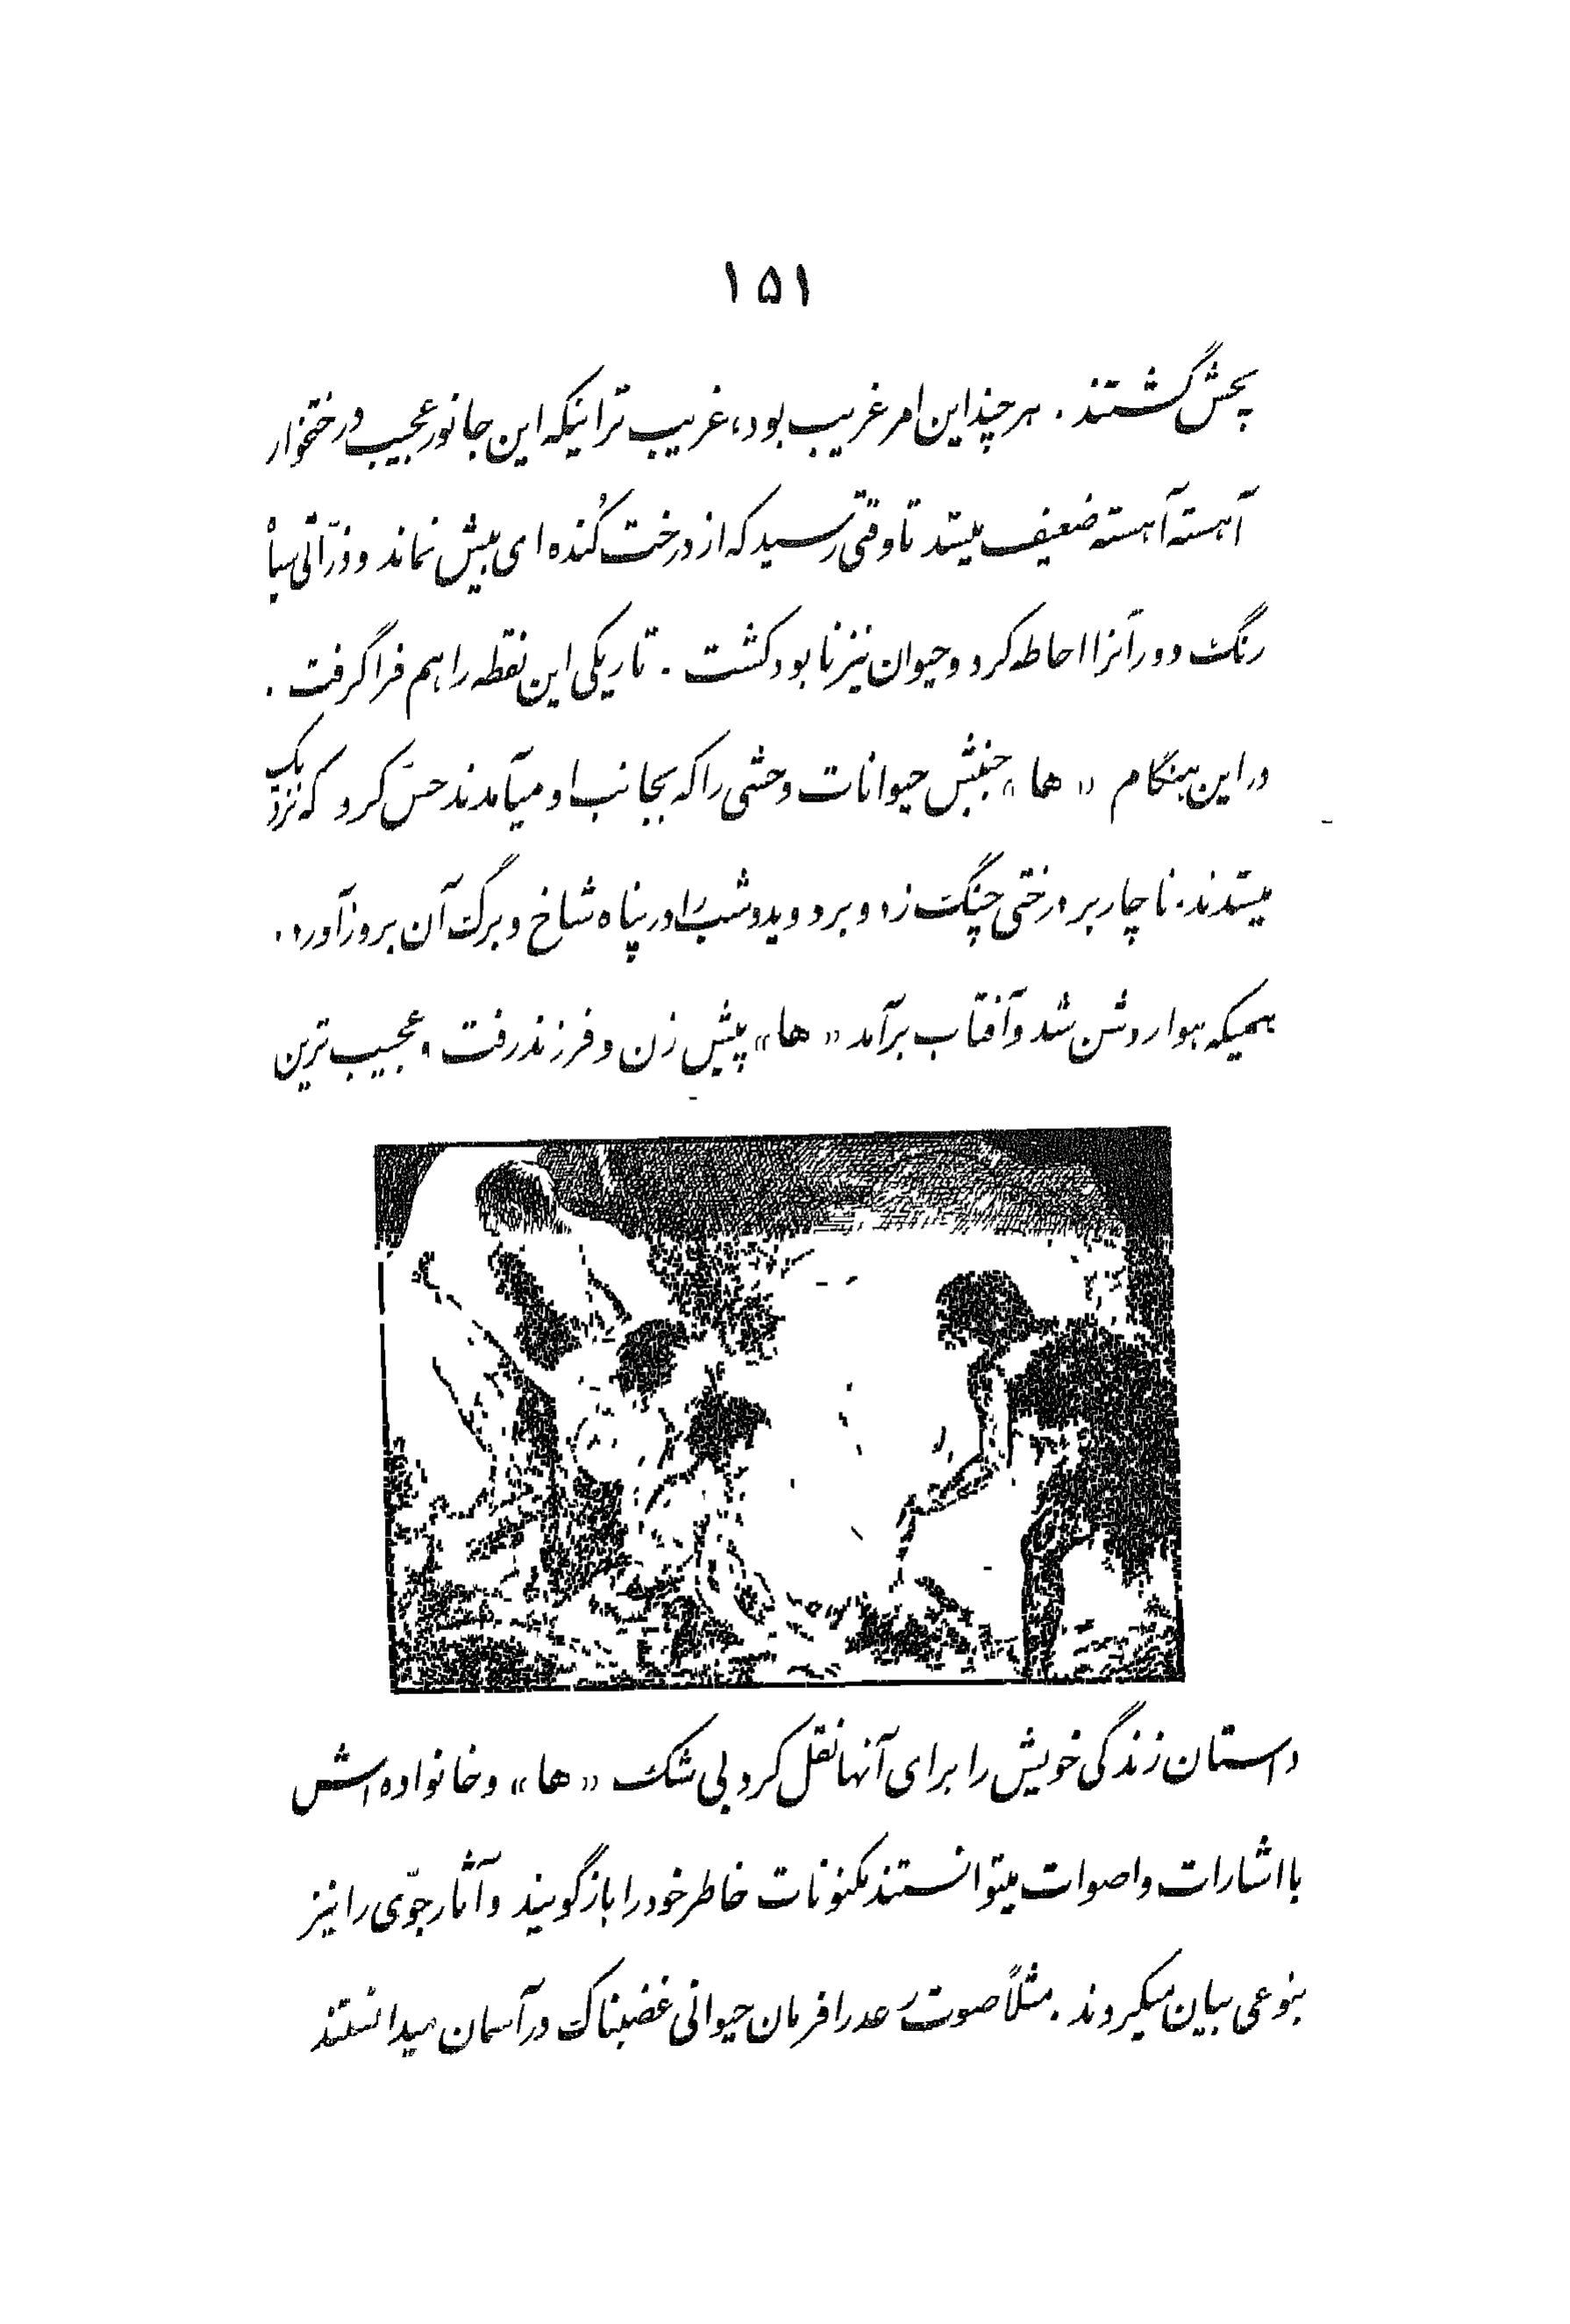 ۱۵۱
پخش گشتند . هر چند این امر غریب بود، غریب تر اینکه این جانور عجیب درختخوار
آهسته آهسته ضعیف میشد تا وقتی رسید که از درخت کُنده ای بیش نماند و ذرّاتی سیاه
رنگ دور آنرا احاطه کرد و حیوان نیز نابود گشت . تاریکی این نقطه را هم فرا گرفت .
در این هنگام « ها » جنبش حیوانات وحشی را که بجانب او میآمدند حسّ کرد که نزدیک
میشدند. ناچار بر درختی چنگ زد و بر دوید و شب را در پناه شاخ و برگ آن بروز آورد .
همینکه هوا روشن شد و آفتاب برآمد « ها » پیش زن و فرزند رفت و عجیب ترین
داستان زندگی خویش را برای آنها نقل کرد بی شک « ها » و خانواده اش
با اشارات و اصوات میتوانستند مکنونات خاطر خود را بازگویند و آثار جوّی را نیز
بنوعی بیان میکردند . مثلاً صوت رعد را فرمان حیوانی غضبناک در آسمان میدانستند